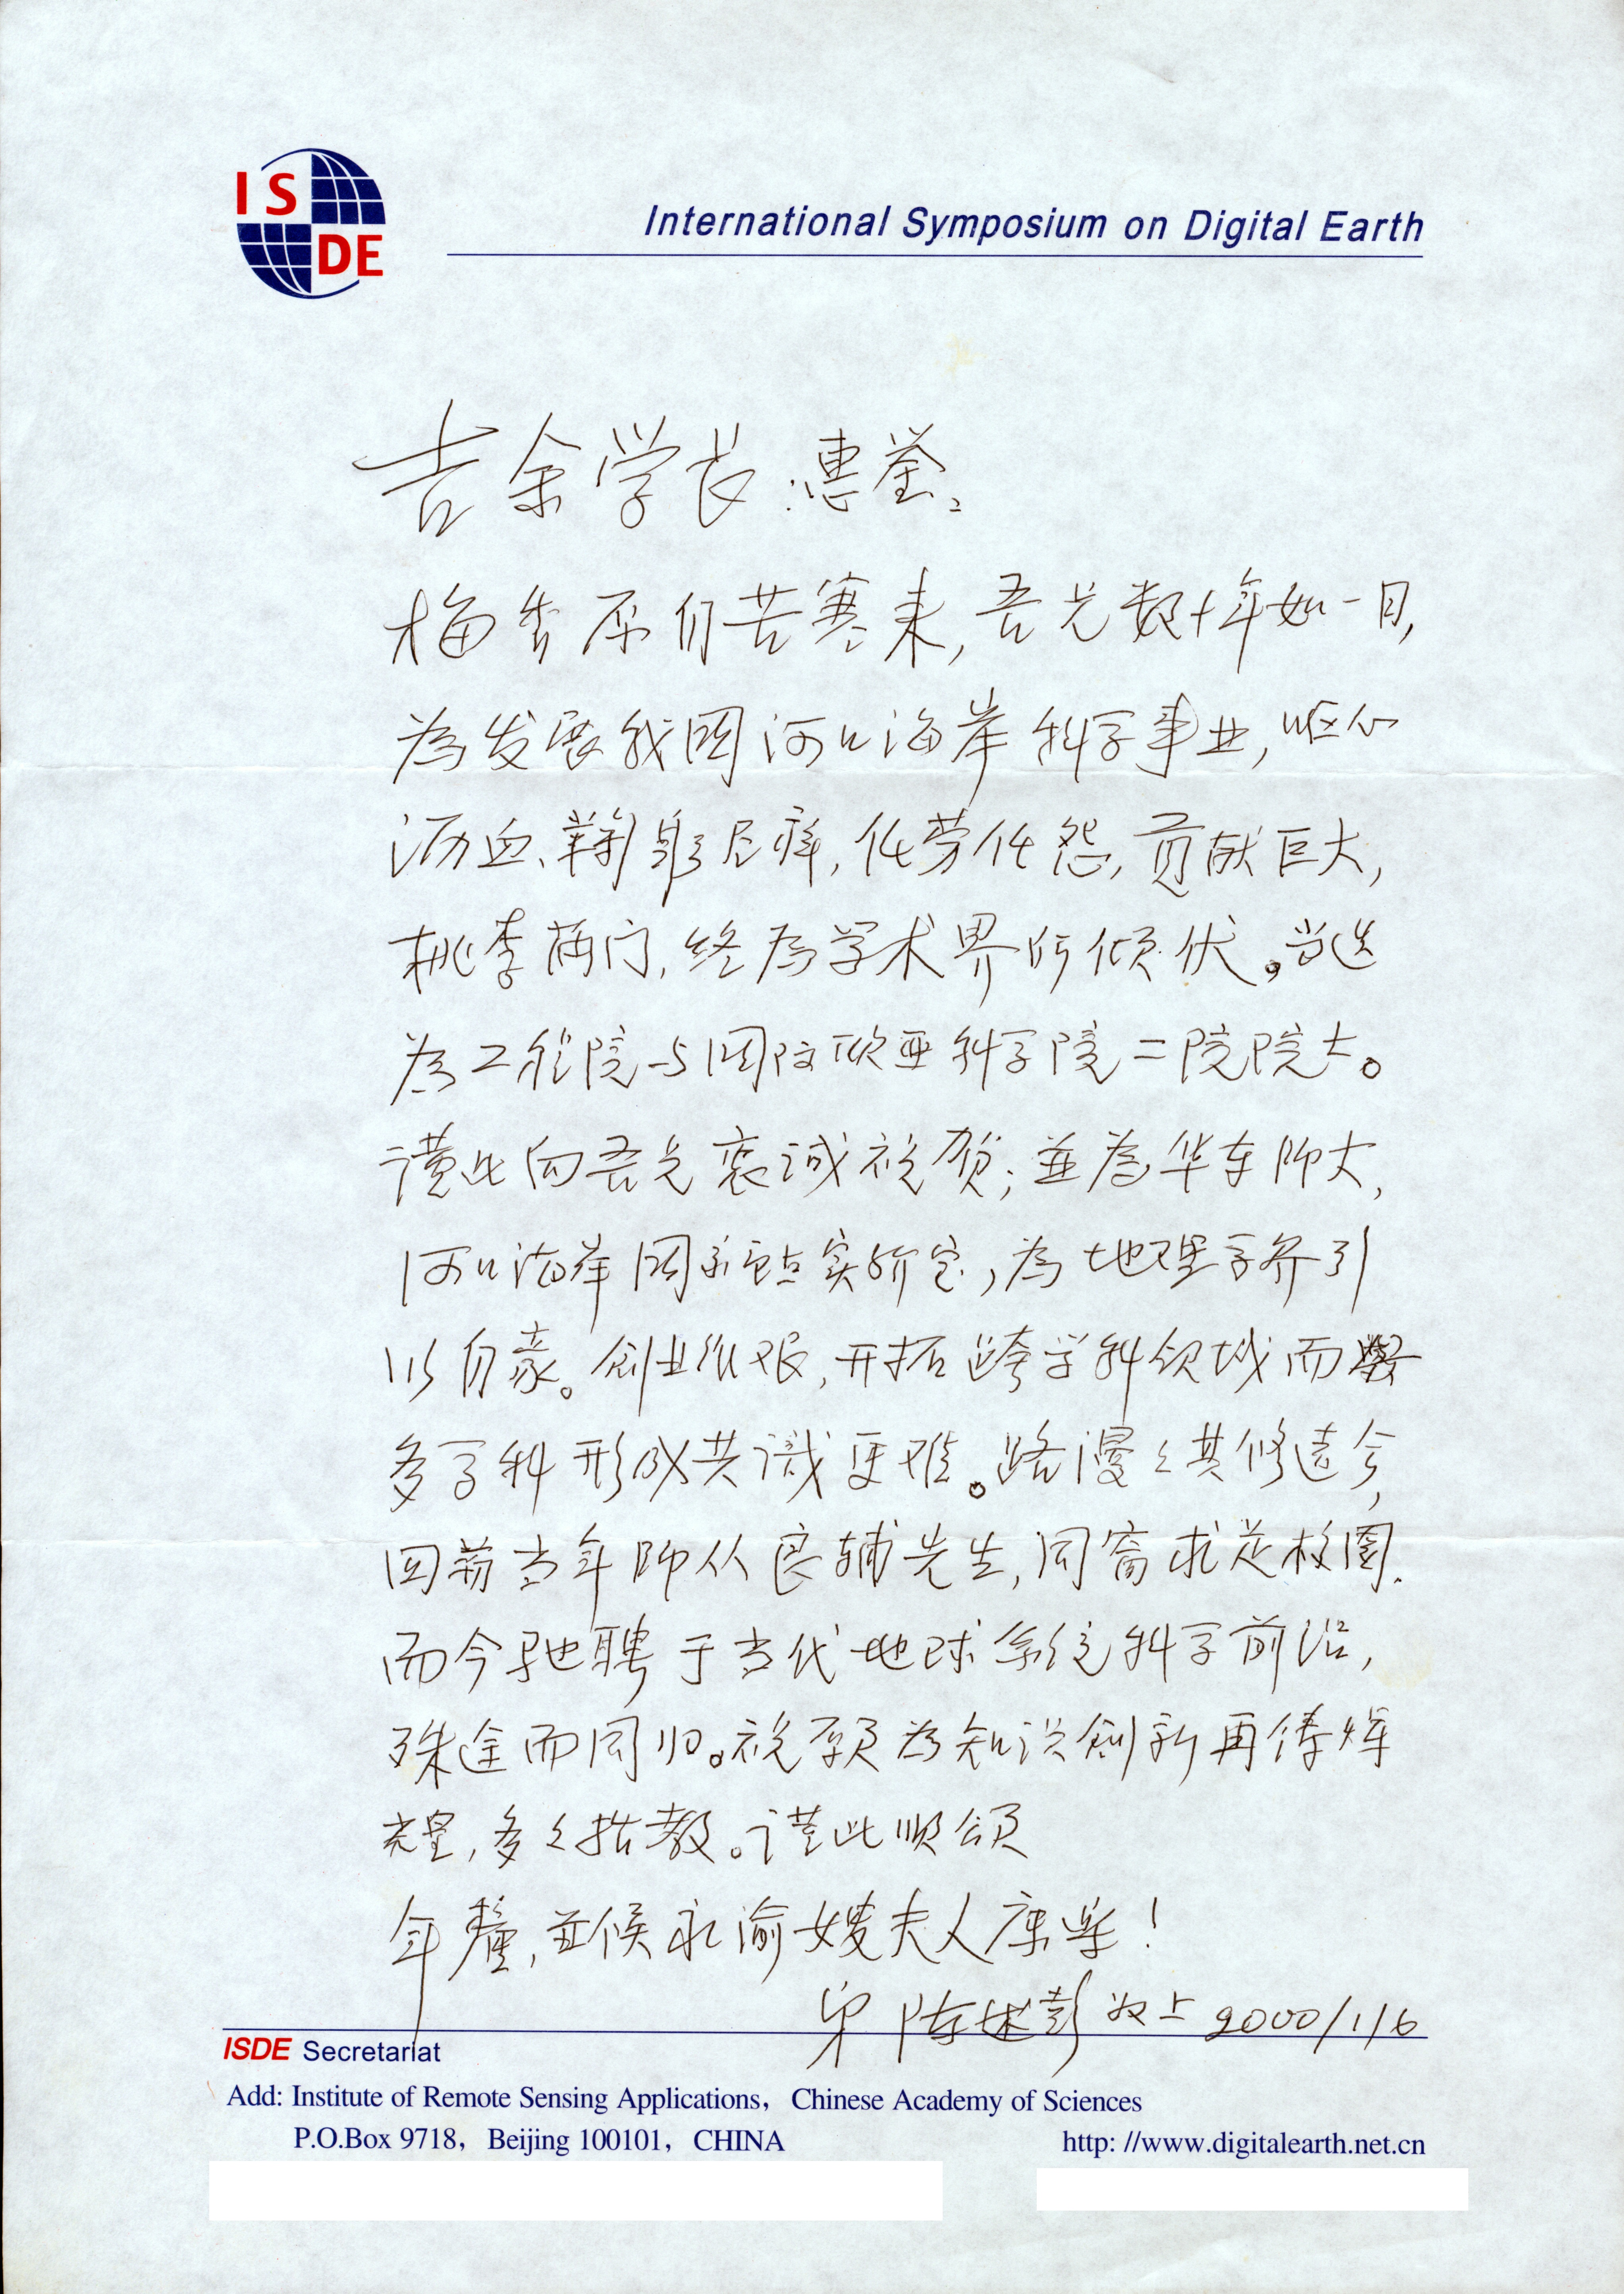 IS
DE
International Symposium on Digital Earth
吉余学长:惠鉴。
梅香原自苦寒来,吾兄数十年如一日,
為发展我国河口海岸科学事业,呕心
沥血、鞠躬尽瘁,任劳任怨,贡献巨大,
桃李满门,终為学术界所倾伏。当选
為工程院与国际欧亚科学院二院院士。
谨此向吾兄衷诚祝贺;並為华东师大,
河口海岸国家重点实验室,為地理学界引
以自豪。创业维艰,开拓跨学科领域而
多学科形成共识更难。路漫々其修远兮,
回首当年师从良辅先生,同窗求是校园.
而今驰聘于当代地球系统科学前沿,
殊途而同归。祝愿為知识创新再铸辉
煌,多々指教。谨此顺颂
年釐,並候永渝嫂夫人康乐!
弟陈述彭敬上2000/1/6
ISDE Secretariat
Add: Institute of Remote Sensing Applications, Chinese Academy of Sciences
P.O.Box 9718, Beijing 100101, CHINA http: //www.digitalearth.net.cn